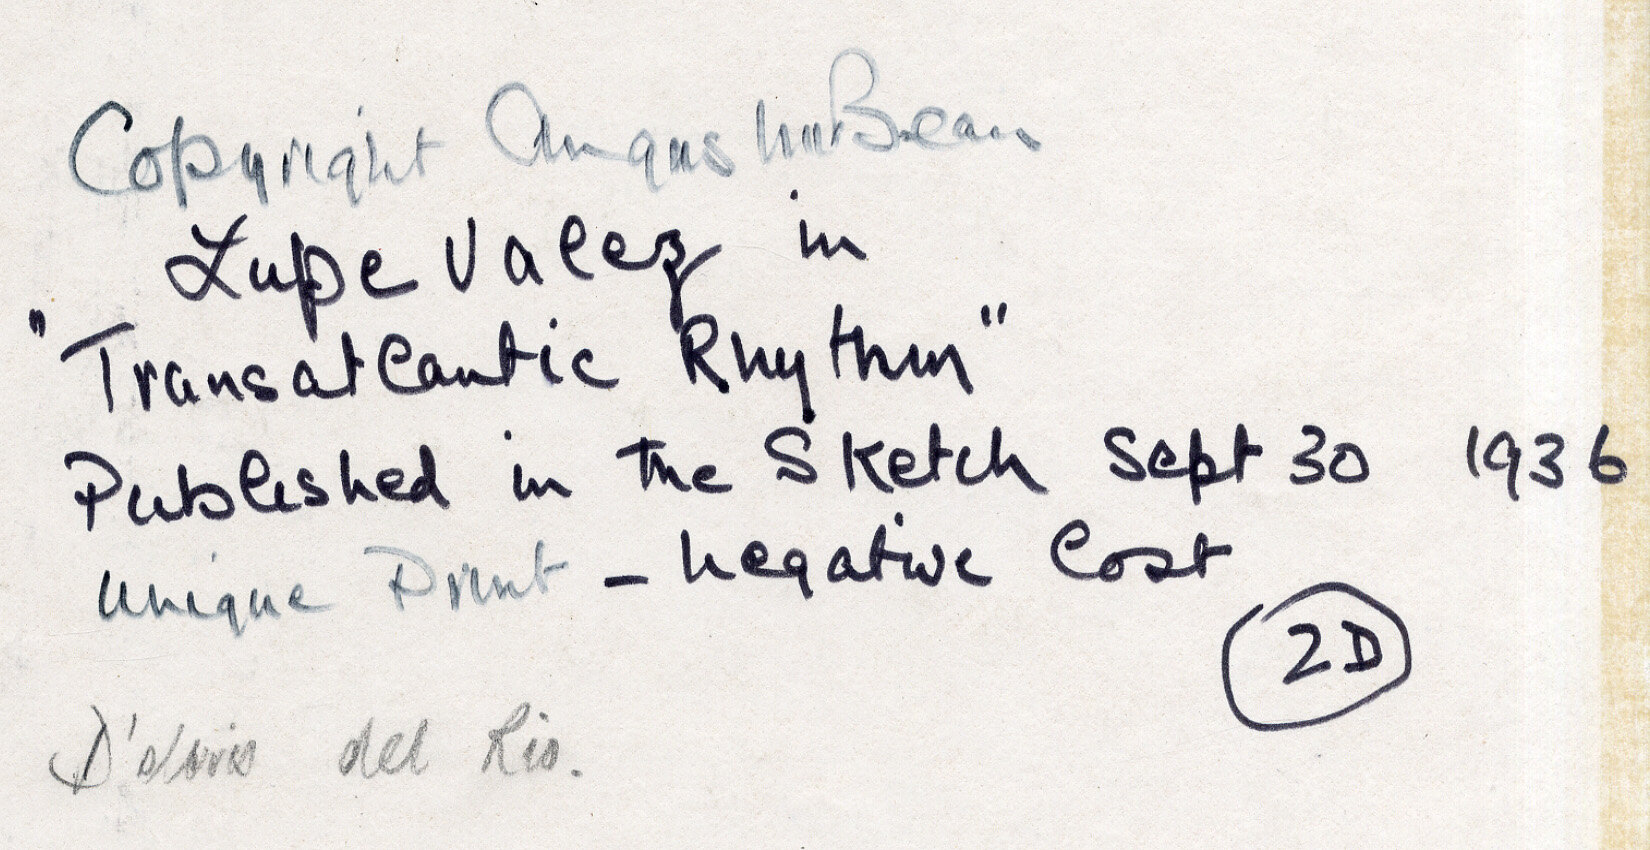 Copyright Angus McBean
Lupe Valez in
"Transatlantic Rhythm"
Published in the Sketch Sept 30 1936
unique Print - negative Cost
2D
D'oloris del Rio.